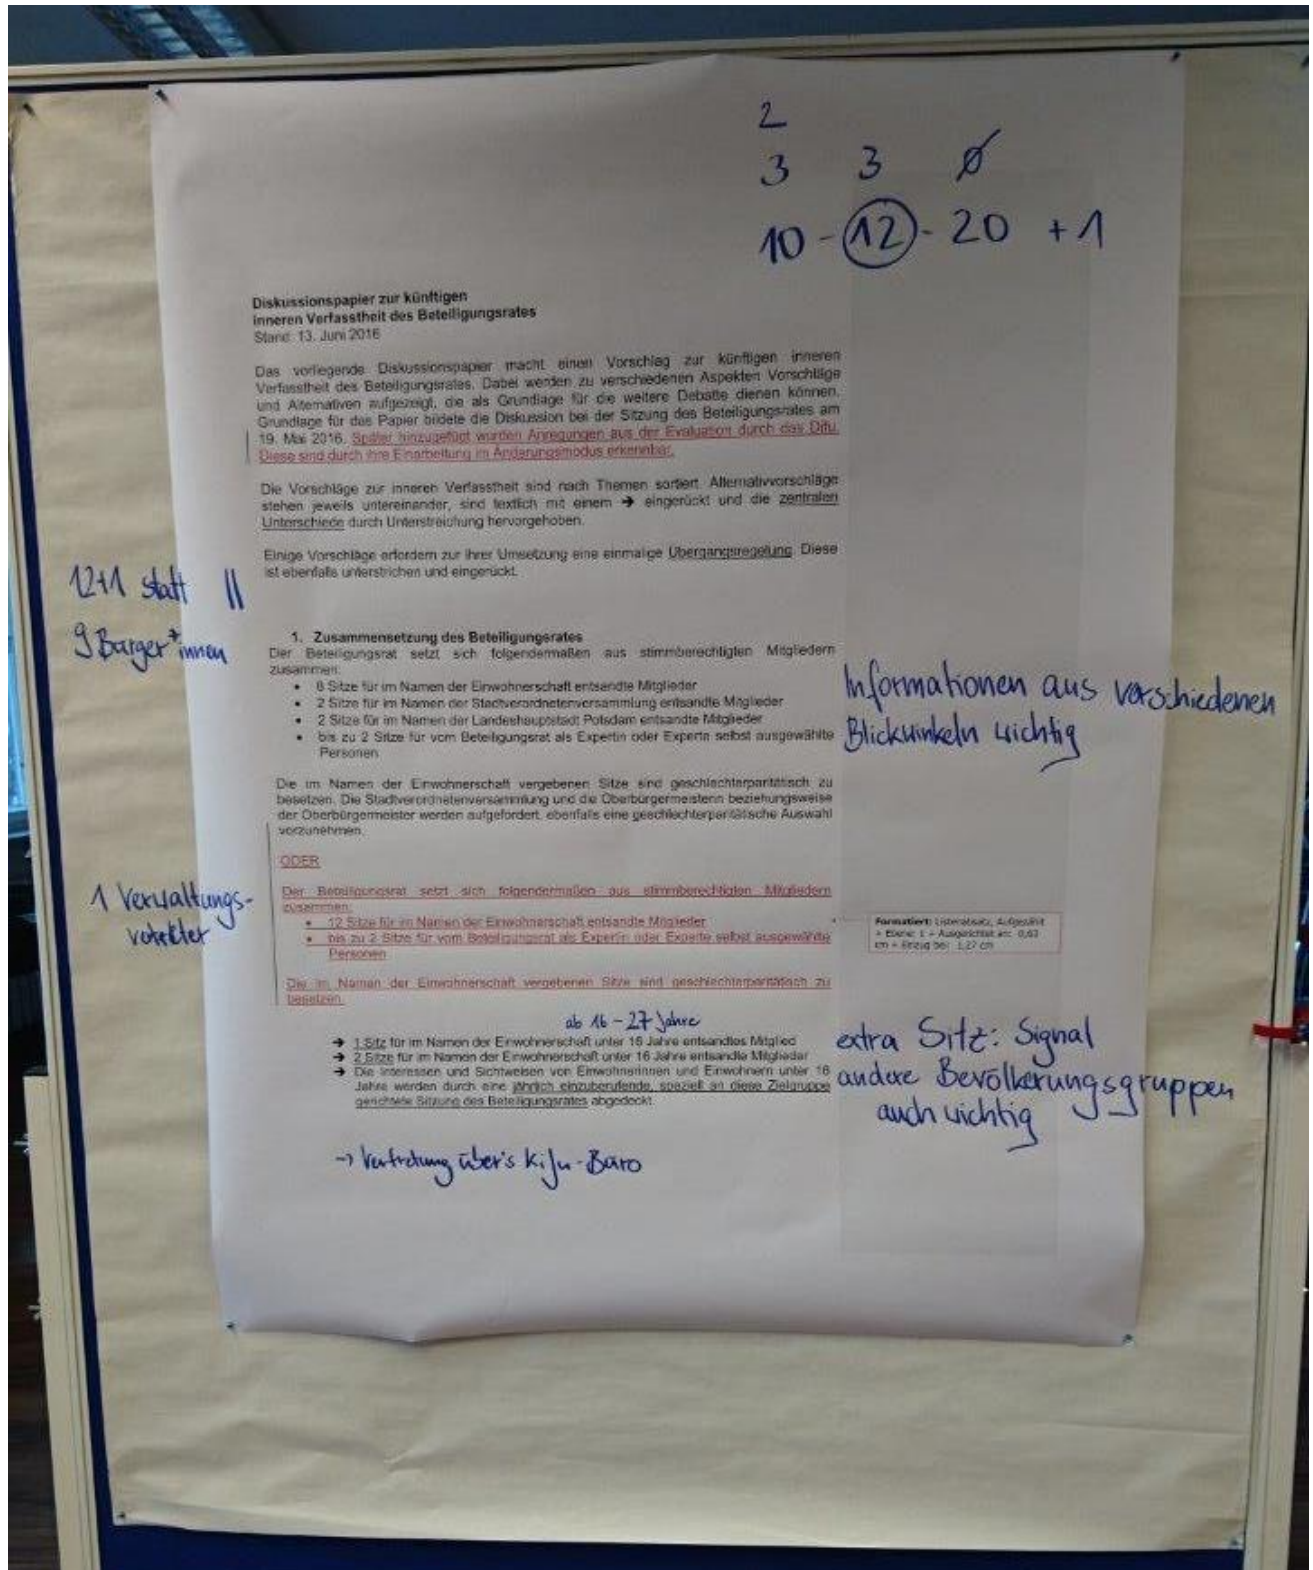 2
3 3 ø
10 - 12 - 20 + 1
Diskussionspapier zur künftigen
inneren Verfasstheit des Beteiligungsrates
Stand: 13. Juni 2016
Das vorliegende Diskussionspapier macht einen Vorschlag zur künftigen inneren
Verfasstheit des Beteiligungsrates. Dabei werden zu verschiedenen Aspekten Vorschläge
und Alternativen aufgezeigt, die als Grundlage für die weitere Debatte dienen können.
Grundlage für das Papier bildete die Diskussion bei der Sitzung des Beteiligungsrates am
19. Mai 2016. Später hinzugefügt wurden Anregungen aus der Evaluation durch das Difu.
Diese sind durch ihre Einarbeitung im Änderungsmodus erkennbar.
Die Vorschläge zur inneren Verfasstheit sind nach Themen sortiert. Alternativvorschläge
stehen jeweils untereinander, sind textlich mit einem → eingerückt und die zentralen
Unterschiede durch Unterstreichung hervorgehoben.
Einige Vorschläge erfordern zur ihrer Umsetzung eine einmalige Übergangsregelung. Diese
ist ebenfalls unterstrichen und eingerückt.
12+1 statt ||
9 Bürger*innen
1. Zusammensetzung des Beteiligungsrates
Der Beteiligungsrat setzt sich folgendermaßen aus stimmberechtigten Mitgliedern
zusammen:
• 8 Sitze für im Namen der Einwohnerschaft entsandte Mitglieder
• 2 Sitze für im Namen der Stadtverordnetenversammlung entsandte Mitglieder
• 2 Sitze für im Namen der Landeshauptstadt Potsdam entsandte Mitglieder
• bis zu 2 Sitze für vom Beteiligungsrat als Expertin oder Experte selbst ausgewählte
Personen
Informationen aus verschiedenen
Blickwinkeln wichtig
Die im Namen der Einwohnerschaft vergebenen Sitze sind geschlechterparitätisch zu
besetzen. Die Stadtverordnetenversammlung und die Oberbürgermeisterin beziehungsweise
der Oberbürgermeister werden aufgefordert, ebenfalls eine geschlechterparitätische Auswahl
vorzunehmen.
ODER
1 Verwaltungs-
vertreter
Der Beteiligungsrat setzt sich folgendermaßen aus stimmberechtigten Mitgliedern
zusammen:
• 12 Sitze für im Namen der Einwohnerschaft entsandte Mitglieder
• bis zu 2 Sitze für vom Beteiligungsrat als Expertin oder Experte selbst ausgewählte
Personen
Formatiert: Listenabsatz, Aufgezählt
+ Ebene: 1 + Ausgerichtet an: 0,63
cm + Einzug bei: 1,27 cm
Die im Namen der Einwohnerschaft vergebenen Sitze sind geschlechterparitätisch zu
besetzen.
ab 16 - 27 Jahre
→ 1 Sitz für im Namen der Einwohnerschaft unter 16 Jahre entsandtes Mitglied
→ 2 Sitze für im Namen der Einwohnerschaft unter 16 Jahre entsandte Mitglieder
→ Die Interessen und Sichtweisen von Einwohnerinnen und Einwohnern unter 16
Jahre werden durch eine jährlich einzuberufende, speziell an diese Zielgruppe
gerichtete Sitzung des Beteiligungsrates abgedeckt.
extra Sitz: Signal
andere Bevölkerungsgruppen
auch wichtig
→ Vertretung über's KiJu-Büro